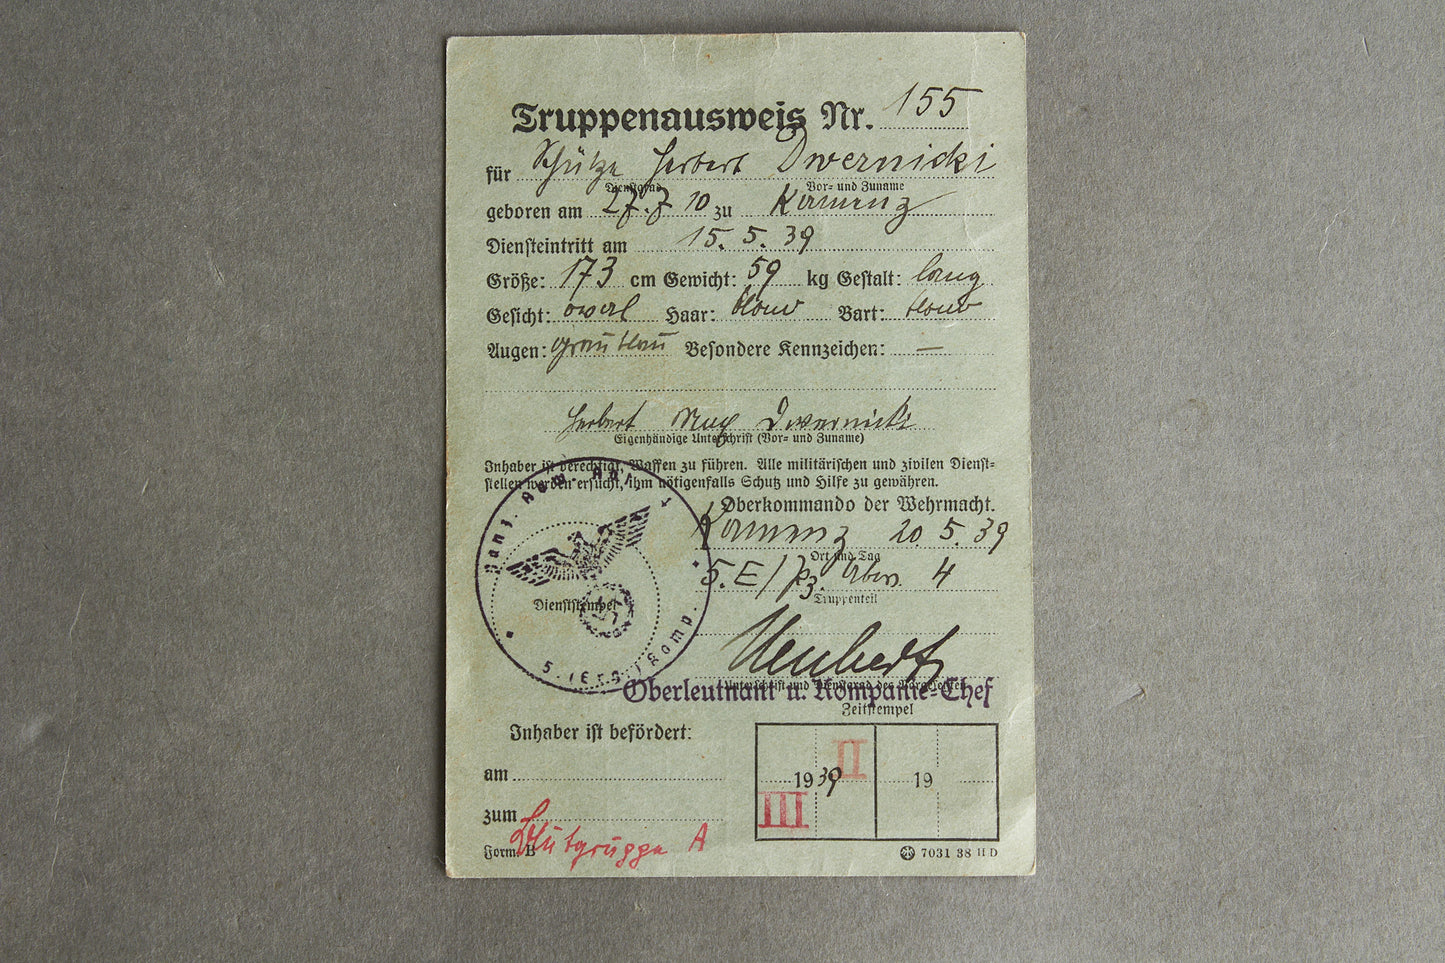 Truppenausweis Nr. 155
für Schütze Herbert Dwernicki
Dienstgrad Vor- und Zuname
geboren am 27.7.10 zu Kamenz
Diensteintritt am 15.5.39
Größe: 173 cm Gewicht: 59 kg Gestalt: lang
Gesicht: oval Haar: blond Bart: blond
Augen: graublau Besondere Kennzeichen: —
Herbert Max Dwernicki
Eigenhändige Unterschrift (Vor- und Zuname)
Inhaber ist berechtigt, Waffen zu führen. Alle militärischen und zivilen Dienst-
stellen werden ersucht, ihm nötigenfalls Schutz und Hilfe zu gewähren.
Oberkommando der Wehrmacht.
Kamenz 20.5.39
Ort und Tag
5.E/Pz. Abw. 4
Truppenteil
Panz. Abw. Abt. 4
Dienststempel
5. (Erg.) Komp.
Unterschrift und Dienstgrad des Vorgesetzten
Oberleutnant u. Kompanie-Chef
Zeitstempel
Inhaber ist befördert:
am
zum
II
1939 19
III
Blutgruppe A
Form B
7031 38 II D